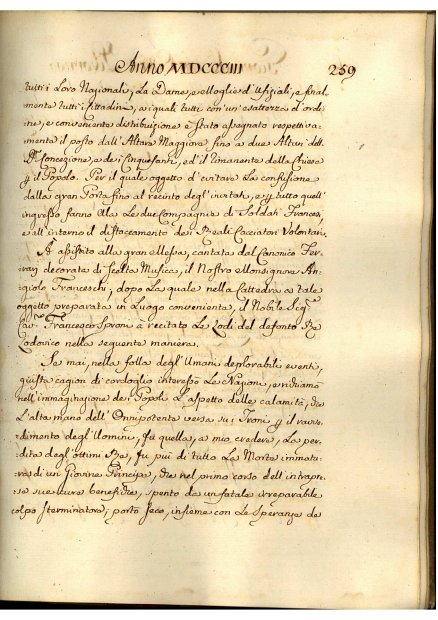 Anno MDCCCIII 259
tutti i Loro Nazionali, La Dame, e alloglie d'Ufiziali, e final
mente tutti i Cittadini, a i quali tutti con un'esattezza d'ordi
ne, e conveniente distribuzione è stato assegnato respettiva
mente il posto dall'Altare Maggiore fino a due Altari dell
Concezione, e dei Cinquesanti, ed il rimanente della Chiesa
p il Popolo. Per il quale oggetto d'evitare La confusione
dalla gran Porta fino al recinto degl'invitati, e p tutto quell'
ingresso fanno Ala Le due Compagnie di Soldati Francesi,
e all'interno il distaccamento dei Reali Cacciatori Volontari.
A assistito alla gran Messa, cantata dal Canonico Fer
decorata di scelta Musica, il Nostro Monsignore An
giolo Franceschi; dopo La quale nella Cattedra a tale
oggetto preparata in Luogo conveniente, il Nobile Sig.
Cav. Francesco Sproni à recitato Le Lodi del defonto Re
Lodovico nella seguente maniera.
Se mai, nella folla degl'Umani deplorabili eventi,
giusta cagion di cordoglio interessò Le Nazioni, e
nell'immaginazione dei Popoli L'aspetto delle calamità, che
L'alta mano dell'Onnipotente versa su i Troni p il ravve
dimento degl'Uomini, fù quella, a mio credere, La per
dita degl'ottimi Re, fù più di tutto La Morte immatu
ra di un Giovine Principe, che nel primo corso dell'intrapre
se sue cure benefiche, spento da un fatale irreparabile
colpo sterminatore, portò seco, insieme con Le speranze de